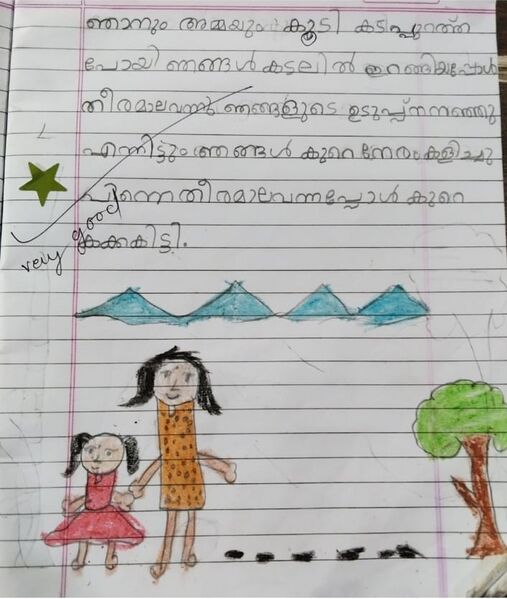 ഞാനും അമ്മയും കൂടി കടപ്പുറത്ത്
പോയി ഞങ്ങൾ കടലിൽ ഇറങ്ങിയപ്പോൾ
തീരമാലവന്നു ഞങ്ങളുടെ ഉടുപ്പ് നനഞ്ഞു
എന്നിട്ടും ഞങ്ങൾ കുറെ നേരം കളിച്ചു
പിന്നെ തീരമാലവന്നപ്പോൾ കുറെ
കക്കകിട്ടി.
very good